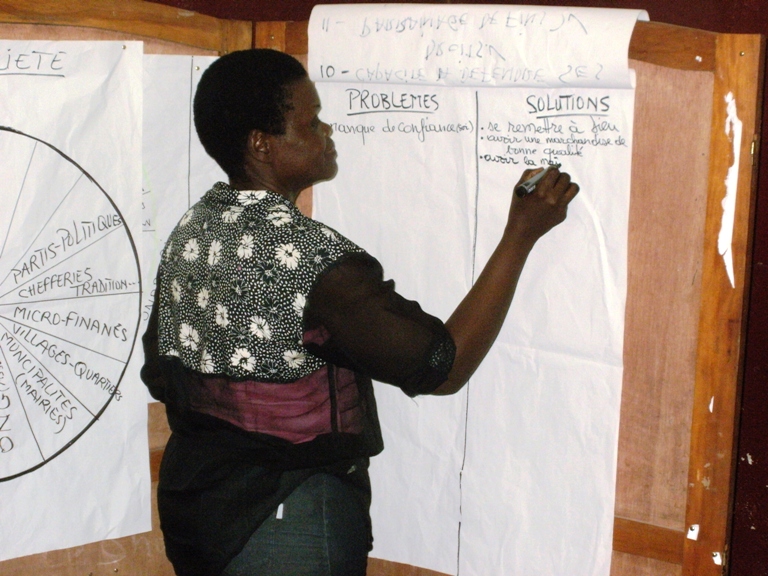 IETE
PARTIS-POLITIQUES
CHEFFERIES TRADITION...
MICRO-FINANÉS
VILLAGES-QUARTIERS
MUNICIPALITES
(MAIRIES)
ONG
10 - CAPACITE DE DEFENDRE SES
PROBLEMES
manque de confiance
SOLUTIONS
• se remettre à Dieu
• avoir une marchandise de
bonne qualité
• avoir la